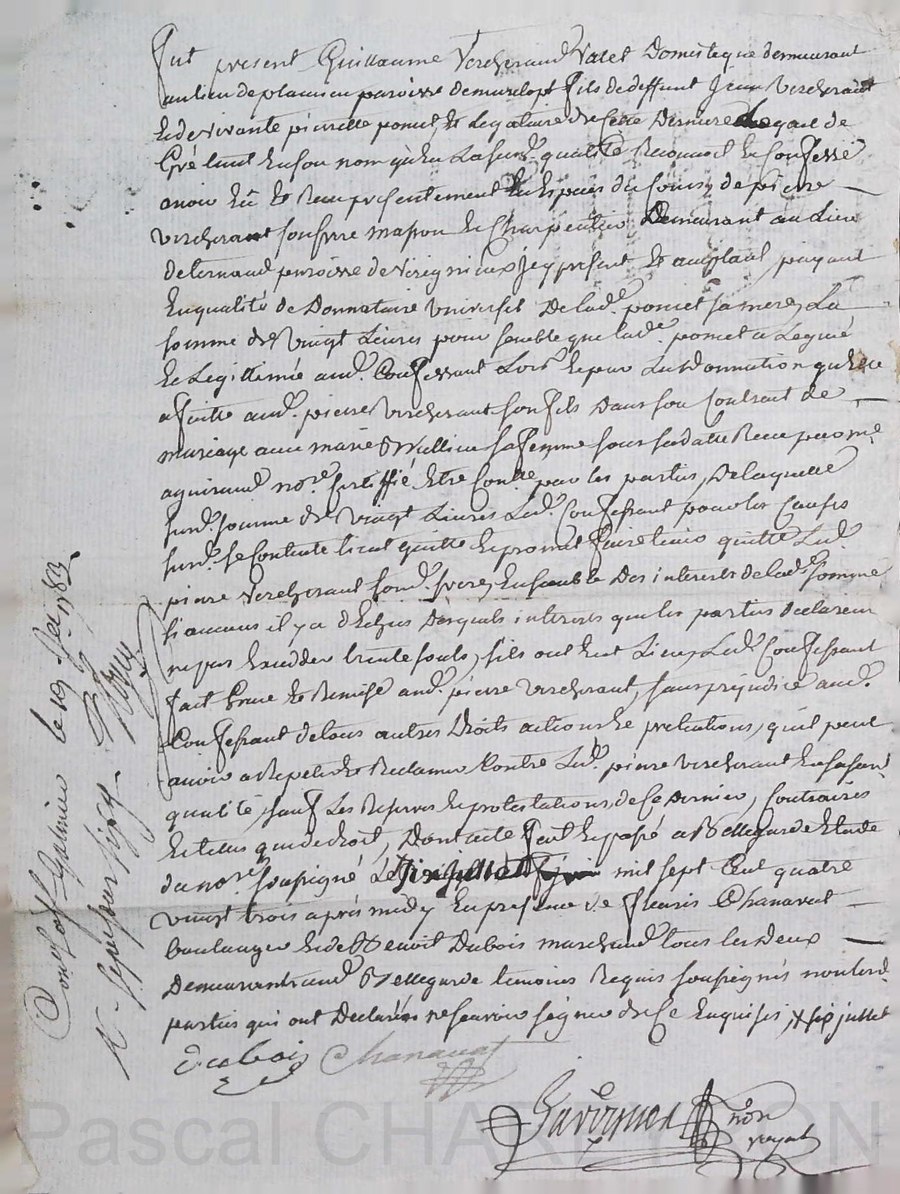 Fut present Guillaume Vercherand Valet Domesteque demeurant
au lieu de plancieu paroisse demurclopt fils de deffunt Jean Vercherand
Et de vivante pierrette poncet Et Legataire de Cette Derniere Lequel de
Gré tant En son nom qu'En La susd. qualité Reconnoit Et Confesse
avoir Eû Et Recu presentement En Especes du Cours de pierre
Vercherant son frere masson Et Charpentier Demeurant au Lieu
de paroisse de verignieux Jcy present Et acceptant payant
En qualité de Donnataire Universel De lad.e poncet sa mere, La
somme de Vingt Livres pour semble que lad.e poncet a Legué
Et Legittimée aud. Confessant Lors Et par La Donnation qu'Elle
a faitte aud. pierre Vercherant son fils Dans son Contrat de
mariage avec marie sa femme sous sa datte Recu par me
aguiraud no.re Certiffié Etre Con.lé par les parties, De laquelle
susd. somme de Vingt Livres Led. Confessant pour les Causes
susd. se Contente tient quitte Et promet faire tenir quitte Led.
pierre Vercherant sond. frere, Ensemble Des interets de lad.e somme
si aucuns il y a d'Echus Desquels interets que les parties declarent
ne pas Exceder trente sols, s'ils ont Eut Lieu, Led. Confessant
fait Grace Et Remise aud. pierre Vercherant, sans prejudice aud.
Confessant de tous autres Droits actions Et pretentions, qu'il peut
avoir a Repeter Et Reclamer Contre Led. pierre Vercherant En sa susd.
qualité, sauf Les Reserves Et protestations de Ce Dernier, Contraires
Et telles que de droit, Dont acte fait Et passé a Bellegarde Etude
du no.re soussigné Le mil sept Cent quatre
Vingt trois apres midy En presence de fleuris Chanavat
boulanger Et de Benoit Dubois marchand tous les Deux
Demeurants aud. Bellegarde temoins Requis soussignés non Lesd.
parties qui ont Declarés ne sçavoir signer de Ce Enquises, + six juillet
Dubois Chanavat
no.re
royal
Con.lé a St Galmier le 19 1783
R.